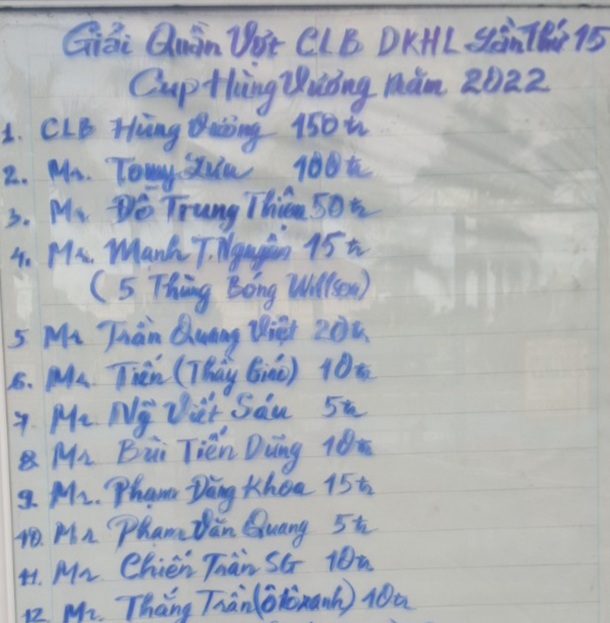 Giải Quần Vợt CLB DKHL Lần Thứ 15
Cup Hùng Vương năm 2022
1. CLB Hùng Vương 150tr
2. Mr. Tomy Lưu 100tr
3. Mr Đỗ Trung Thiên 50tr
4. Mr. Manh T. Nguyễn 15tr
( 5 Thùng Bóng Willson)
5 Mr Trần Quang Việt 20tr
6. Mr. Tiến (Thầy Giáo) 10tr
7 Mr. Ng Viết Sáu 5tr
8 Mr Bùi Tiến Dũng 10tr
9. Mr. Phạm Đăng Khoa 15tr
10. Mr Phạm Văn Quang 5tr
11. Mr Chiến Trần SG 10tr
12 Mr. Thắng Trần (ô tô xanh) 10tr